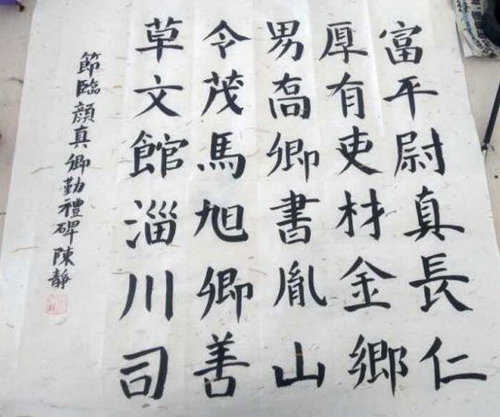 富平尉真長仁
厚有吏材金鄉
男高卿書胤山
令茂馬旭卿善
草文館淄川司
節臨顔真卿勤禮碑陳靜